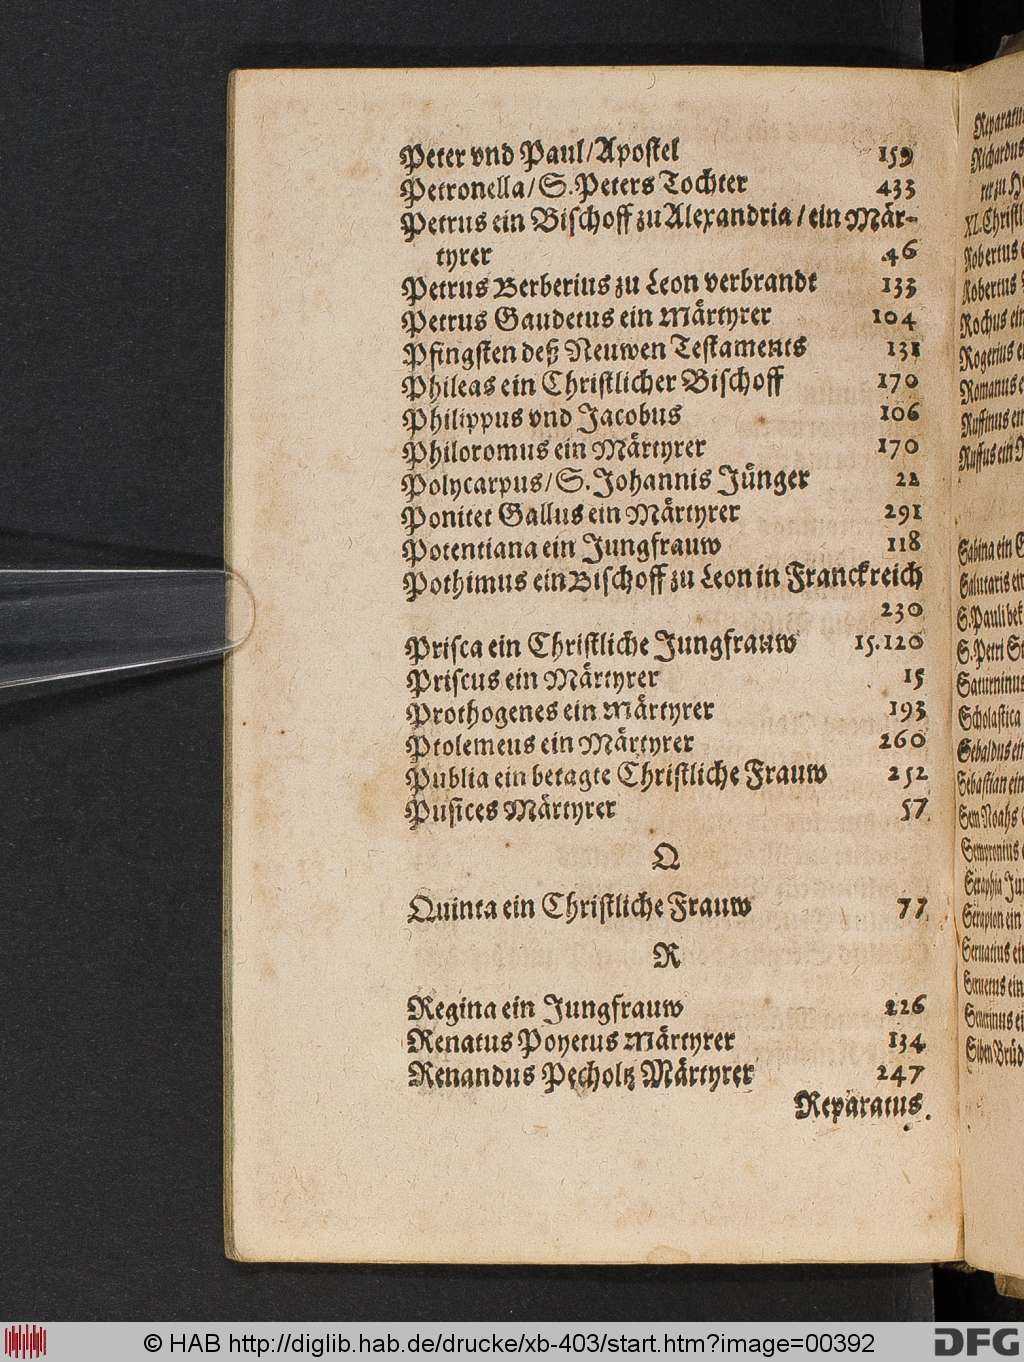 Peter vnd Paul/Apostel 159
Petronella/S.Peters Tochter 433
Petrus ein Bischoff zu Alexandria/ein Mär-
tyrer 46
Petrus Berberius zu Leon verbrandt 133
Petrus Gaudetus ein Märtyrer 104
Pfingsten deß Neuwen Testaments 131
Phileas ein Christlicher Bischoff 170
Philippus vnd Jacobus 106
Philoromus ein Märtyrer 170
Polycarpus/S.Johannis Jünger 22
Ponitet Gallus ein Märtyrer 291
Potentiana ein Jungfrauw 118
Pothimus ein Bischoff zu Leon in Franckreich
230
Prisca ein Christliche Jungfrauw 15.120
Priscus ein Märtyrer 15
Prothogenes ein Märtyrer 193
Ptolemeus ein Märtyrer 260
Publia ein betagte Christliche Frauw 252
Pusices Märtyrer 57
Q
Quinta ein Christliche Frauw 77
R
Regina ein Jungfrauw 226
Renatus Poyetus Märtyrer 134
Renandus Pecholtz Märtyrer 247
Reparatus.
Richardus
XL.Christl
Robertus
Robertus
Rochus ein
Rogerius
Romanus
Ruffinus ein
Ruffus ein
Sabina ein
Salutaris ein
S.Pauli bek
S.Petri
Saturninus
Scholastica
Sebaldus ein
Sebastian ein
Sem Noahs
Sempronius
Seraphia
Serapion ein
Seruatius
Seruetus ein
Seuerinus
© HAB http://diglib.hab.de/drucke/xb-403/start.htm?image=00392
DFG